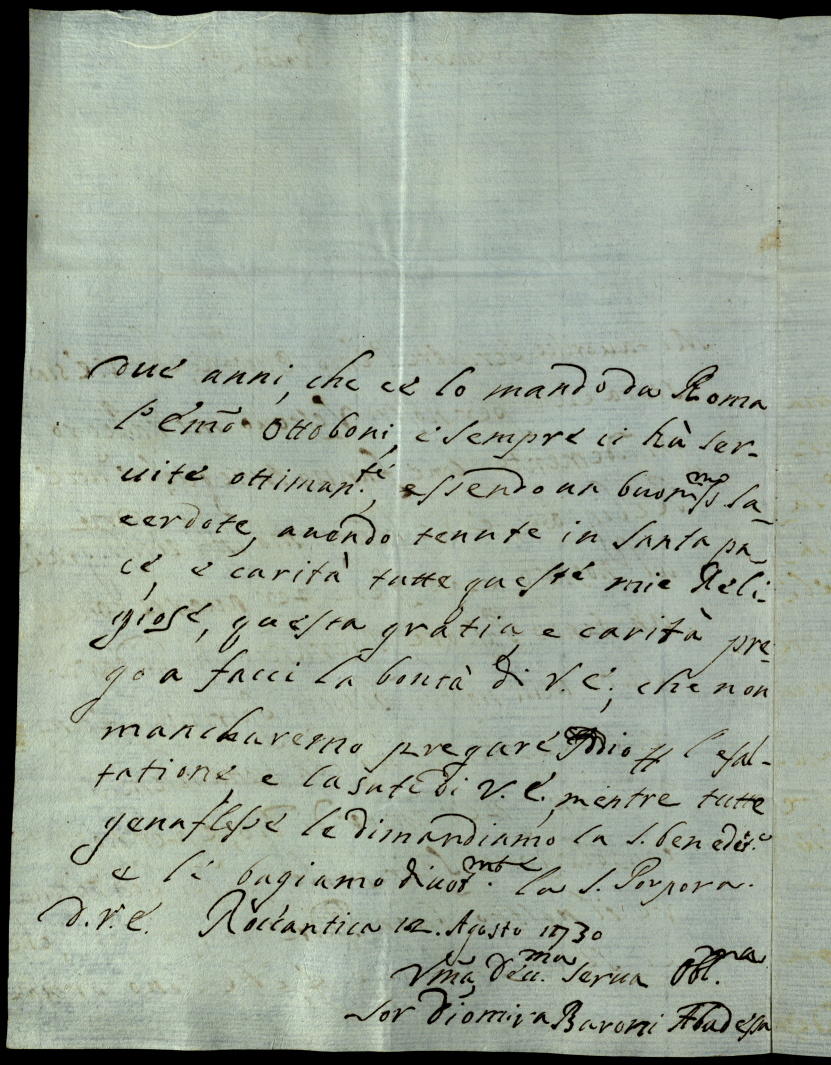 due anni, che ce lo mandò da Roma
l'Em̃o Ottoboni, e sempre ci hà ser-
uite ottimam.te, essendo un buoniss.mo sa-
cerdote, auendo tenute in santa pa-
ce, e carità tutte queste mie Reli-
giose, questa gratia, e carità pre-
go a facci la bontà di V. E., che non
mancharemo pregare Iddio p l'esal-
tatione, e la salute di V. E., mentre tutte
genaflesse le dimandiamo la S. bened.e
e li bagiamo diuot.mte la S. Porpora.
D. V. E. Roccantica 12. Agosto 1730
Vm̃a, Deu.ma Serua Obl.ma
Sor Diomira Baroni Abadessa